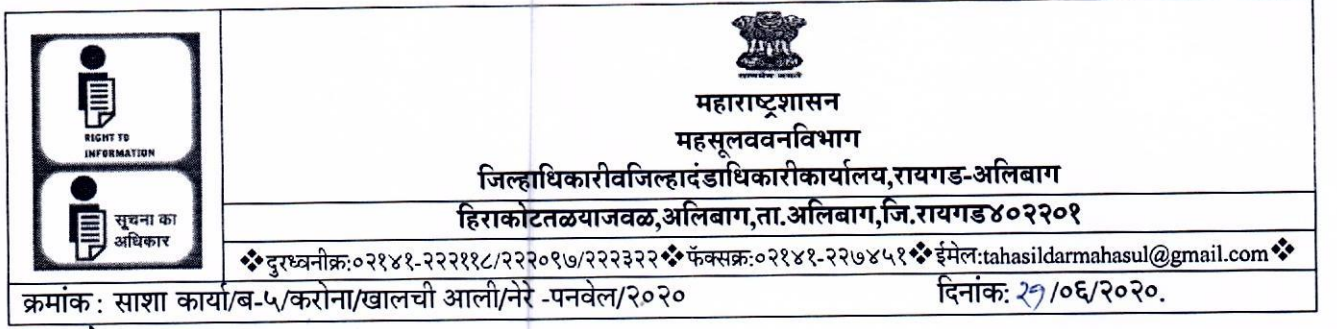 RIGHT TO
INFORMATION
सूचना का
अधिकार
सत्यमेव जयते
महाराष्ट्रशासन
महसूलववनविभाग
जिल्हाधिकारीवजिल्हादंडाधिकारीकार्यालय,रायगड-अलिबाग
हिराकोटतळयाजवळ,अलिबाग,ता.अलिबाग,जि.रायगड४०२२०१
❖दुरध्वनीक्र:०२१४१-२२२११८/२२२०९७/२२२३२२❖फॅक्सक्र:०२१४१-२२७४५१❖ईमेल:tahasildarmahasul@gmail.com❖
क्रमांक : साशा कार्या/ब-५/करोना/खालची आली/नेरे -पनवेल/२०२० दिनांक: २१/०६/२०२०.